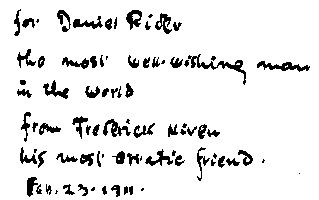 for Daniel Rider
the most well-wishing man
in the world
from Frederick Niven
his most erratic friend.
Feb. 23. 1911.